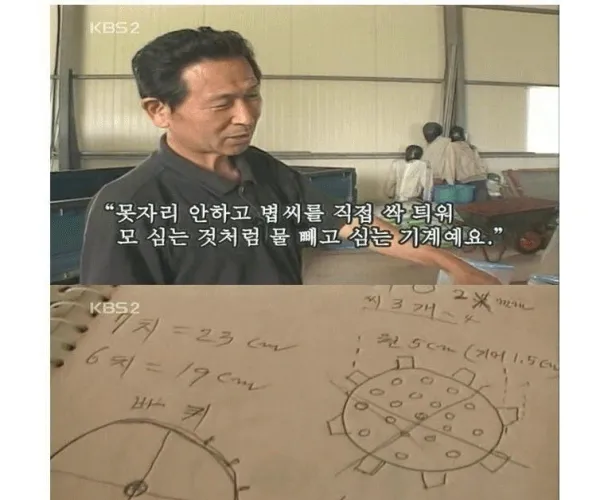 KBS2
“못자리 안하고 볍씨를 직접 싹 틔워
모 심는 것처럼 물 빼고 심는 기계예요.”
KBS2
씨 3개 - 4
7치 = 23 cm
6치 = 19 cm
원 5cm (기어 1.5cm)
바퀴